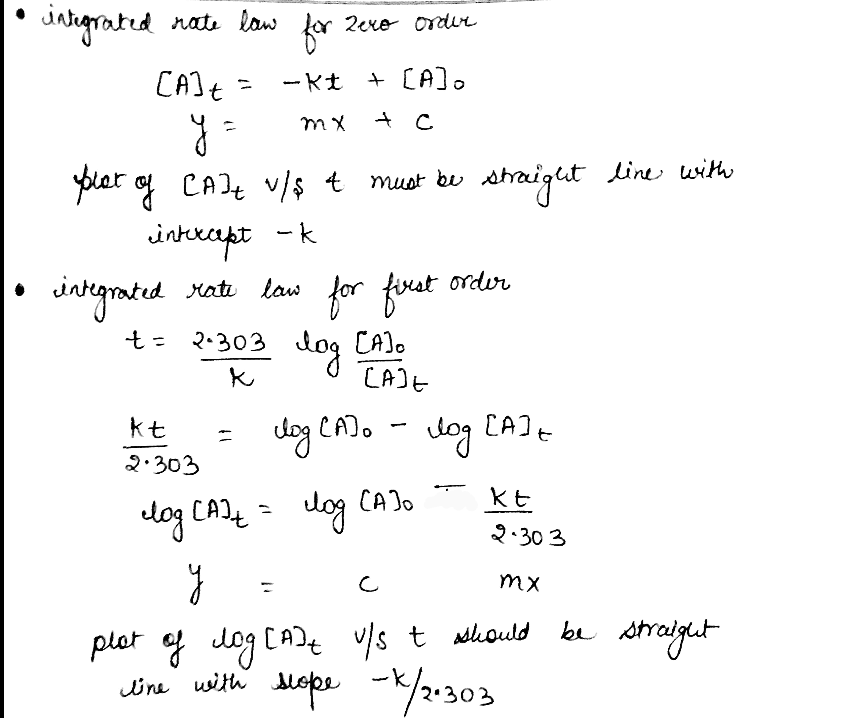 • integrated rate law for zero order
[A]t = -kt + [A]₀
y = mx + c
plot of [A]t v/s t must be straight line with
intercept -k
• integrated rate law for first order
t = 2.303/k log [A]₀/[A]t
kt/2.303 = log [A]₀ - log [A]t
log [A]t = log [A]₀ - kt/2.303
y = c mx
plot of log [A]t v/s t should be straight
line with slope -k/2.303